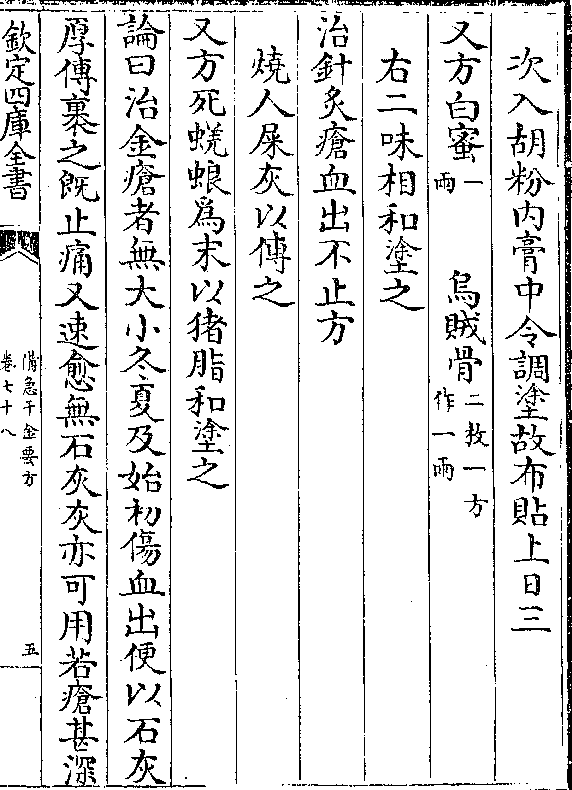 次入胡粉内膏中令調塗故布貼上日三
又方白蜜一兩 烏賊骨二枚一方作一兩
右二味相和塗之
治針灸瘡血出不止方
燒人屎灰以傅之
又方死蜣蜋爲末以猪脂和塗之
論曰治金瘡者無大小冬夏及始初傷血出便以石灰
厚傅裹之既止痛又速愈無石灰灰亦可用若瘡甚深
欽定四庫全書
備急千金要方
卷七十八
五